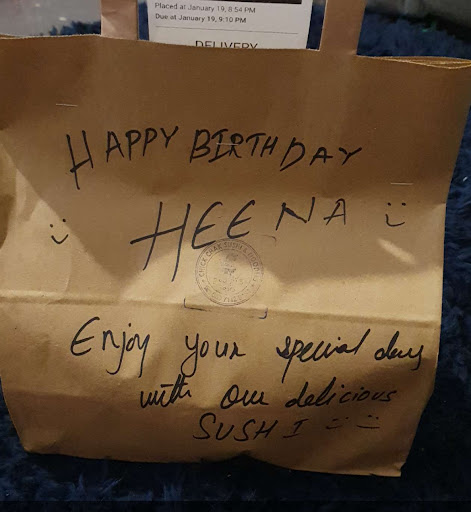 Placed at January 19, 8:54 PM
Due at January 19, 9:10 PM
DELIVERY
HAPPY BIRTHDAY
HEENA
Enjoy your special day
with our delicious
SUSHI